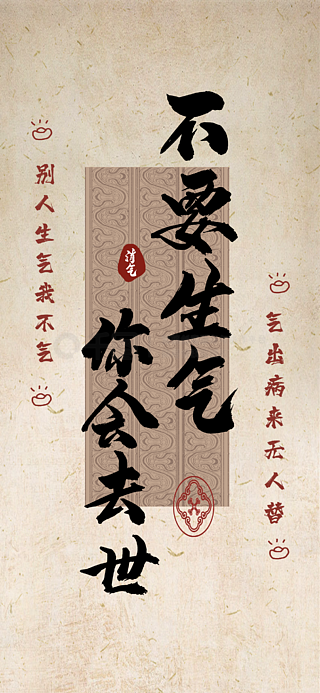 不要生气
你会去世
消气
别人生气我不气
气出病来无人替